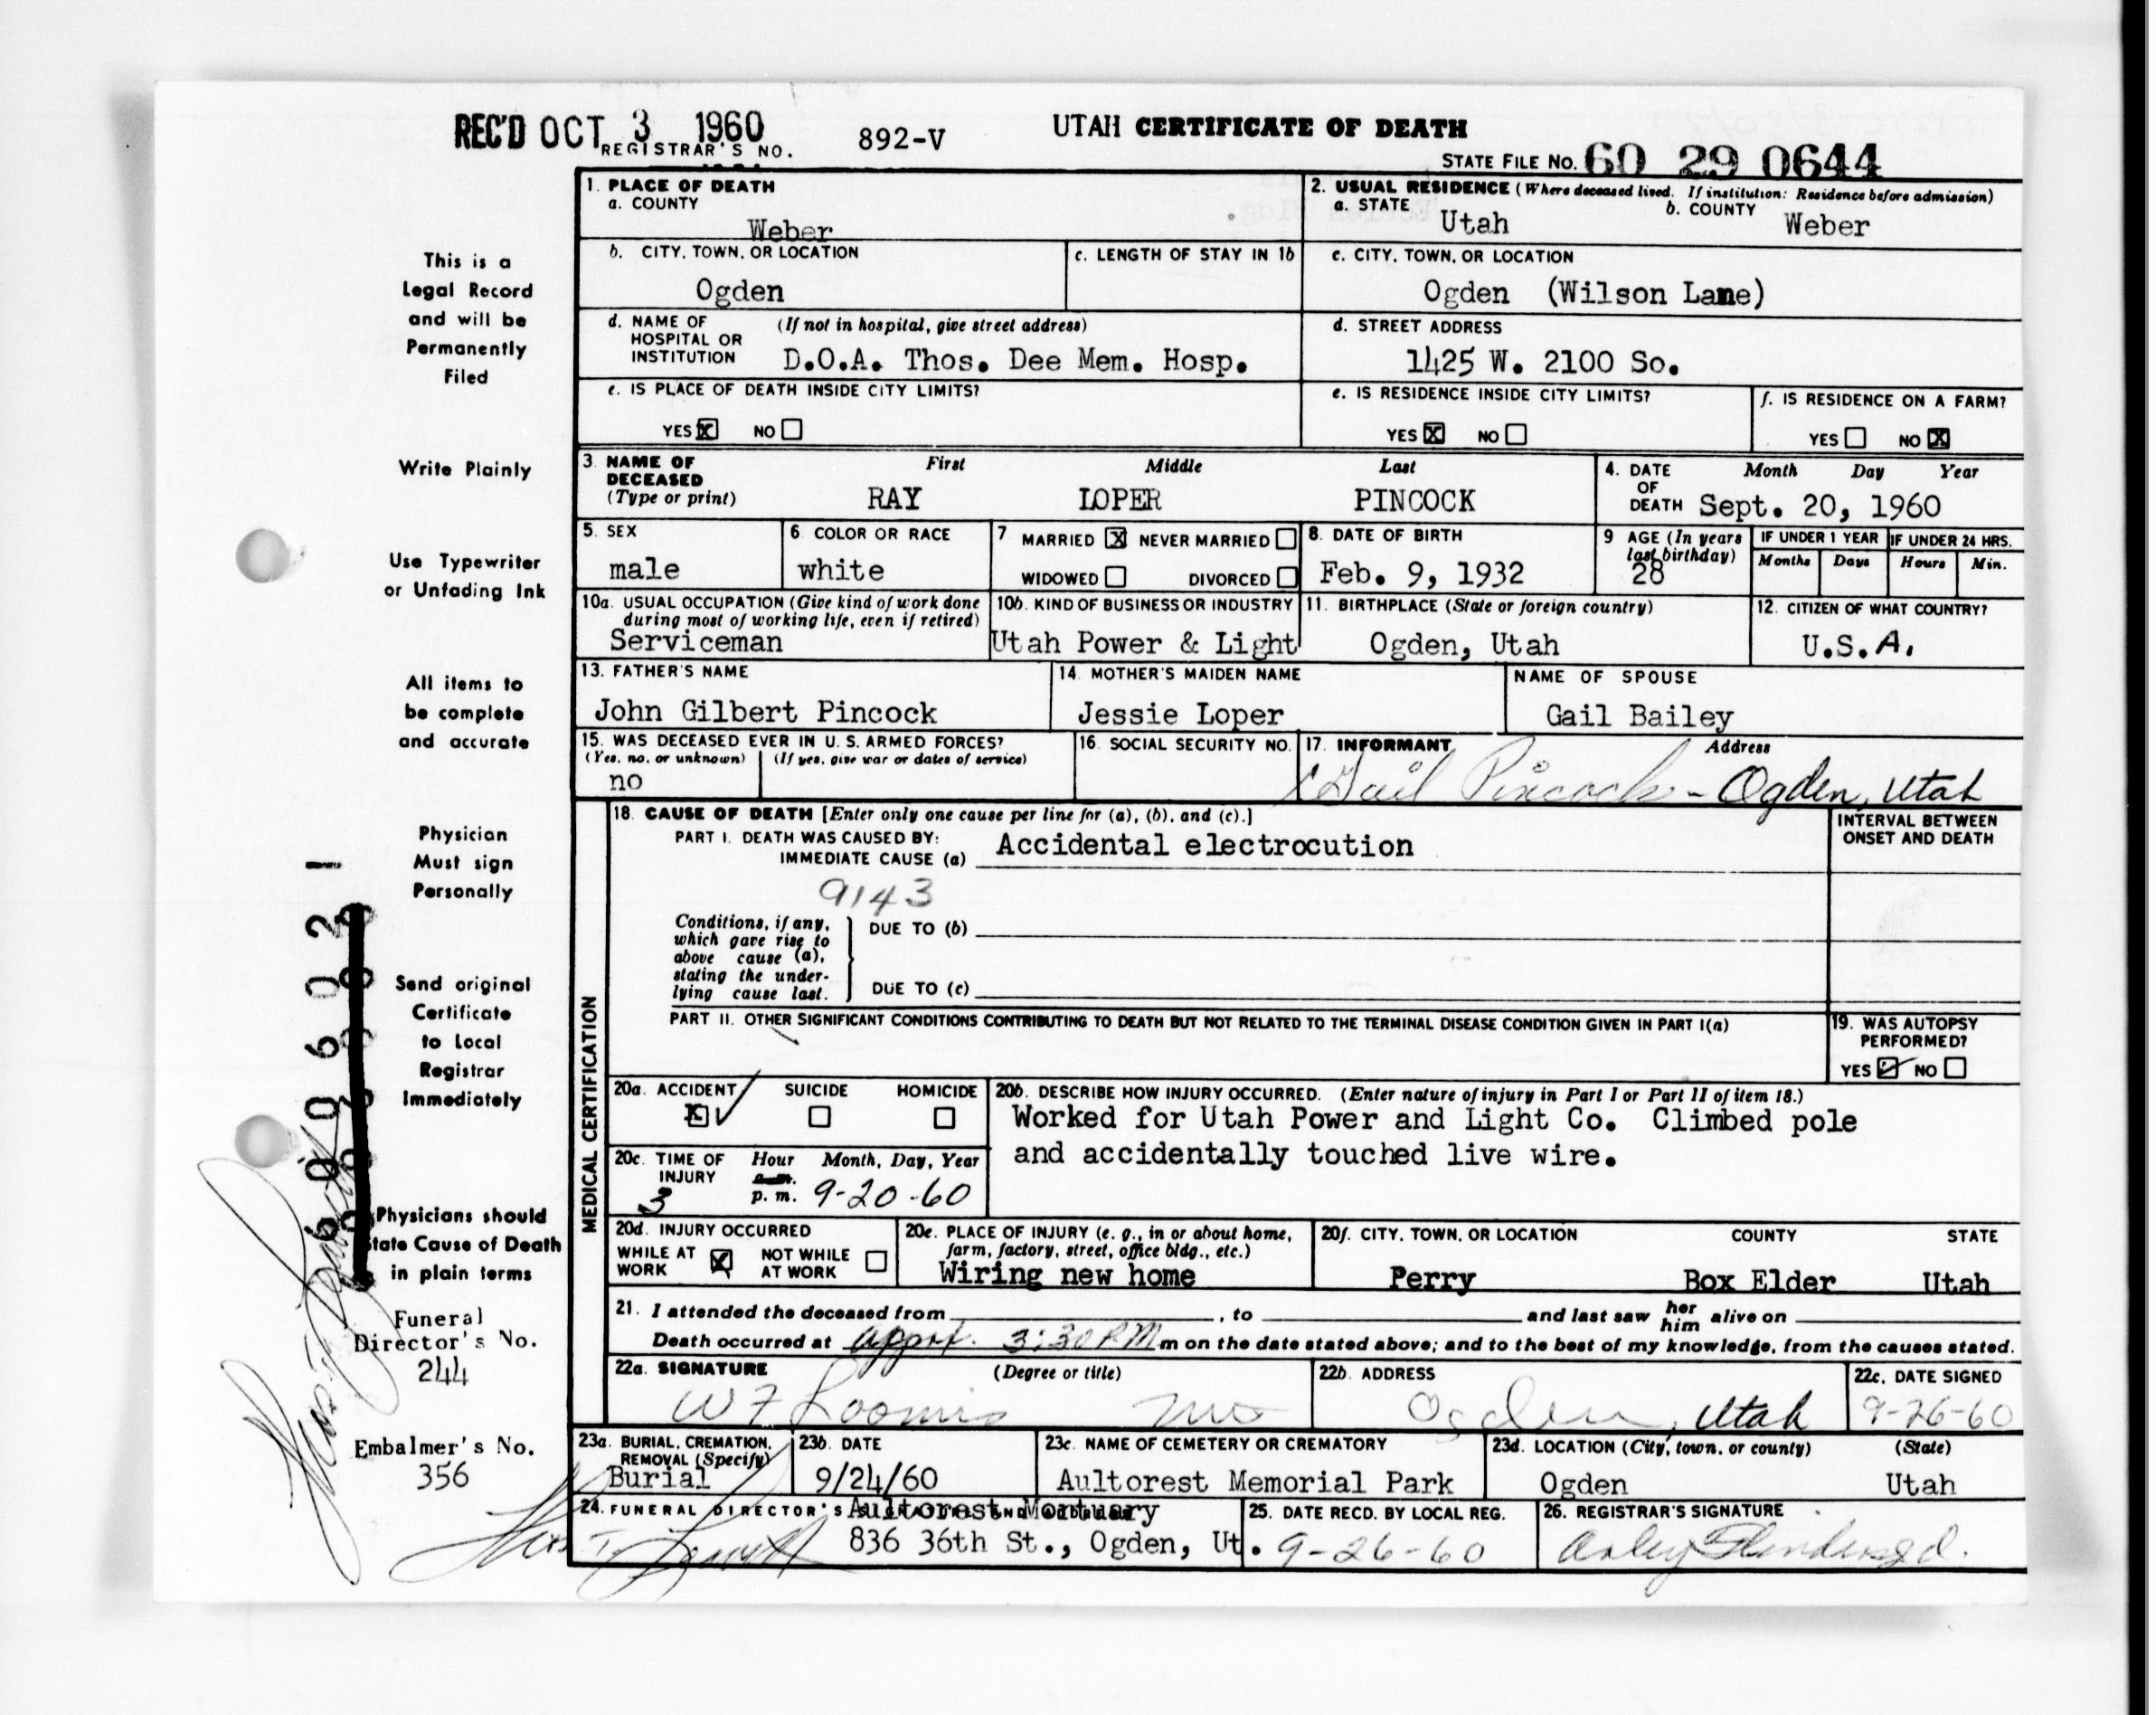 REC'D OCT 3 1960
REGISTRAR'S NO. 892-V
UTAH CERTIFICATE OF DEATH
STATE FILE NO. 60 29 0644
This is a
Legal Record
and will be
Permanently
Filed
Write Plainly
Use Typewriter
or Unfading Ink
All items to
be complete
and accurate
Physician
Must sign
Personally
Send original
Certificate
to Local
Registrar
Immediately
Physicians should
State Cause of Death
in plain terms
Funeral
Director's No.
244
Embalmer's No.
356
1. PLACE OF DEATH
a. COUNTY
Weber
2. USUAL RESIDENCE (Where deceased lived. If institution: Residence before admission)
a. STATE Utah b. COUNTY Weber
b. CITY, TOWN, OR LOCATION
Ogden
c. LENGTH OF STAY IN 1b
c. CITY, TOWN, OR LOCATION
Ogden (Wilson Lane)
d. NAME OF HOSPITAL OR INSTITUTION (If not in hospital, give street address)
D.O.A. Thos. Dee Mem. Hosp.
d. STREET ADDRESS
1425 W. 2100 So.
e. IS PLACE OF DEATH INSIDE CITY LIMITS?
YES X NO
e. IS RESIDENCE INSIDE CITY LIMITS?
YES X NO
f. IS RESIDENCE ON A FARM?
YES NO X
3. NAME OF DECEASED (Type or print) First Middle Last
RAY LOPER PINCOCK
4. DATE OF DEATH Month Day Year
Sept. 20, 1960
5. SEX
male
6. COLOR OR RACE
white
7. MARRIED X NEVER MARRIED
WIDOWED DIVORCED
8. DATE OF BIRTH
Feb. 9, 1932
9. AGE (In years last birthday)
28
IF UNDER 1 YEAR
Months Days
IF UNDER 24 HRS.
Hours Min.
10a. USUAL OCCUPATION (Give kind of work done during most of working life, even if retired)
Serviceman
10b. KIND OF BUSINESS OR INDUSTRY
Utah Power & Light
11. BIRTHPLACE (State or foreign country)
Ogden, Utah
12. CITIZEN OF WHAT COUNTRY?
U.S.A.
13. FATHER'S NAME
John Gilbert Pincock
14. MOTHER'S MAIDEN NAME
Jessie Loper
NAME OF SPOUSE
Gail Bailey
15. WAS DECEASED EVER IN U. S. ARMED FORCES?
(Yes, no, or unknown) (If yes, give war or dates of service)
no
16. SOCIAL SECURITY NO.
17. INFORMANT Address
Gail Pincock - Ogden, Utah
MEDICAL CERTIFICATION
18. CAUSE OF DEATH [Enter only one cause per line for (a), (b), and (c).]
PART I. DEATH WAS CAUSED BY:
IMMEDIATE CAUSE (a) Accidental electrocution
9143
Conditions, if any, which gave rise to above cause (a), stating the underlying cause last.
DUE TO (b)
DUE TO (c)
INTERVAL BETWEEN ONSET AND DEATH
PART II. OTHER SIGNIFICANT CONDITIONS CONTRIBUTING TO DEATH BUT NOT RELATED TO THE TERMINAL DISEASE CONDITION GIVEN IN PART I(a)
19. WAS AUTOPSY PERFORMED?
YES NO
20a. ACCIDENT SUICIDE HOMICIDE
X
20b. DESCRIBE HOW INJURY OCCURRED. (Enter nature of injury in Part I or Part II of item 18.)
Worked for Utah Power and Light Co. Climbed pole
and accidentally touched live wire.
20c. TIME OF INJURY Hour Month, Day, Year
3 a.m. p. m. 9-20-60
20d. INJURY OCCURRED
WHILE AT WORK X NOT WHILE AT WORK
20e. PLACE OF INJURY (e. g., in or about home, farm, factory, street, office bldg., etc.)
Wiring new home
20f. CITY, TOWN, OR LOCATION COUNTY STATE
Perry Box Elder Utah
21. I attended the deceased from , to and last saw her him alive on
Death occurred at approx. 3:30 P.M. m on the date stated above; and to the best of my knowledge, from the causes stated.
22a. SIGNATURE (Degree or title)
W F Loomis MD
22b. ADDRESS
Ogden, Utah
22c. DATE SIGNED
9-26-60
23a. BURIAL, CREMATION, REMOVAL (Specify)
Burial
23b. DATE
9/24/60
23c. NAME OF CEMETERY OR CREMATORY
Aultorest Memorial Park
23d. LOCATION (City, town, or county) (State)
Ogden Utah
24. FUNERAL DIRECTOR'S
Aultorest Mortuary
836 36th St., Ogden, Ut.
25. DATE RECD. BY LOCAL REG.
9-26-60
26. REGISTRAR'S SIGNATURE